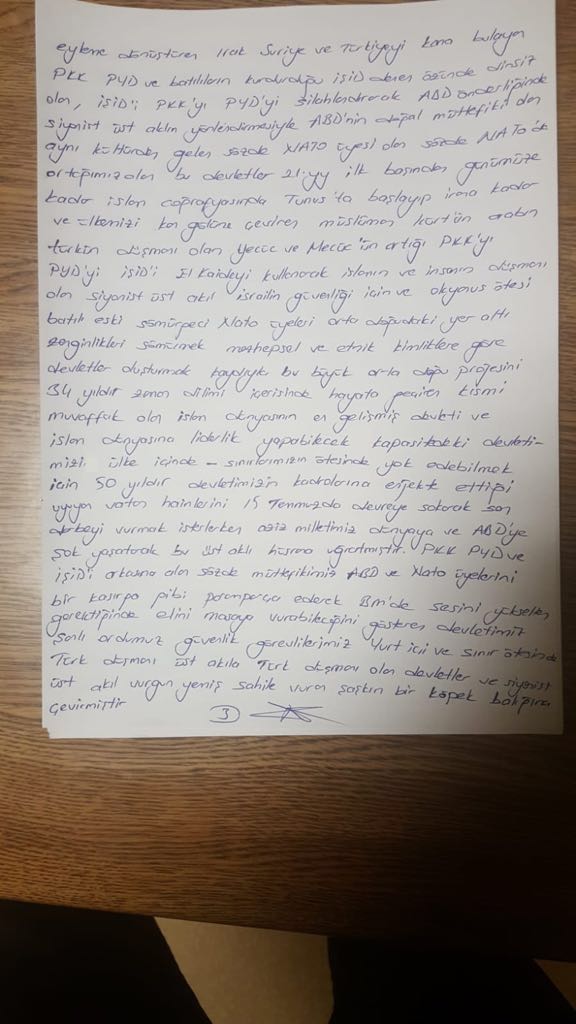 eyleme dönüştüren Irak Suriye ve Türkiyeyi kana bulayan
PKK PYD ve batılıların kurdurduğu işid denen özünde dinsiz
olan, işiD'i PKK'yı PYD'yi silahlandırarak ABD önderliğinde
siyonist üst aklın yönlendirmesiyle ABD'nin doğal müttefikleri olan
aynı kültürden gelen sözde NATO üyesi olan sözde NATO'da
ortağımız olan bu devletler 21.yy ilk başından günümüze
kadar islam coğrafyasında Tunus'ta başlayıp kadar
ve ülkemizi kan gölüne çeviren müslüman kürt'ün arabın
türkün düşmanı olan yecüc ve Mecüc'ün ortağı PKK'yı
PYD'yi işiD'i El kaideyi kullanarak islamın ve insanın düşmanı
olan siyonist üst akıl israilin güvenliği için ve okyanus ötesi
batılı eski sömürgeci Nato üyeleri orta doğudaki yer altı
zenginlikleri sömürmek mezhepsel ve etnik kimliklere göre
devletler oluşturmak kaydıyla bu büyük orta doğu projesini
34 yıldır zaman dilimi içerisinde hayata geçiren kısmi
muvaffak olan islam dünyasının en gelişmiş devleti ve
islam dünyasına liderlik yapabilecek kapasitedeki devleti-
mizi ülke içinde - sınırlarımızın ötesinde yok edebilmek
için 50 yıldır devletimizin kadrolarına enjekte ettiği
uyuyan vatan hainlerini 15 Temmuzda devreye sokarak son
darbeyi vurmak isterlerken aziz milletimiz dünyaya ve ABD'ye
şok yaşatarak bu üst aklı hüsrana uğratmıştır. PKK PYD ve
işiD'i arkasına alan sözde müttefikimiz ABD ve Nato üyelerini
bir kasırga gibi paramparça ederek Bm'de sesini yükselten
gerektiğinde elini masaya vurabileceğini gösteren devletimiz
şanlı ordumuz güvenlik görevlilerimiz yurt içi ve sınır ötesinde
Türk düşmanı üst akıla Türk düşmanı olan devletler ve siyonist
üst akıl vurgun yemiş sahile vuran şaşkın bir köpek balığına
çevirmiştir
3